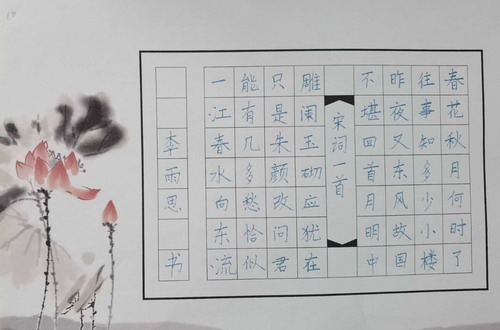 春花秋月何时了
往事知多少小楼
昨夜又东风故国
不堪回首月明中
宋词一首
雕阑玉砌应犹在
只是朱颜改问君
能有几多愁恰似
一江春水向东流
李雨思 书